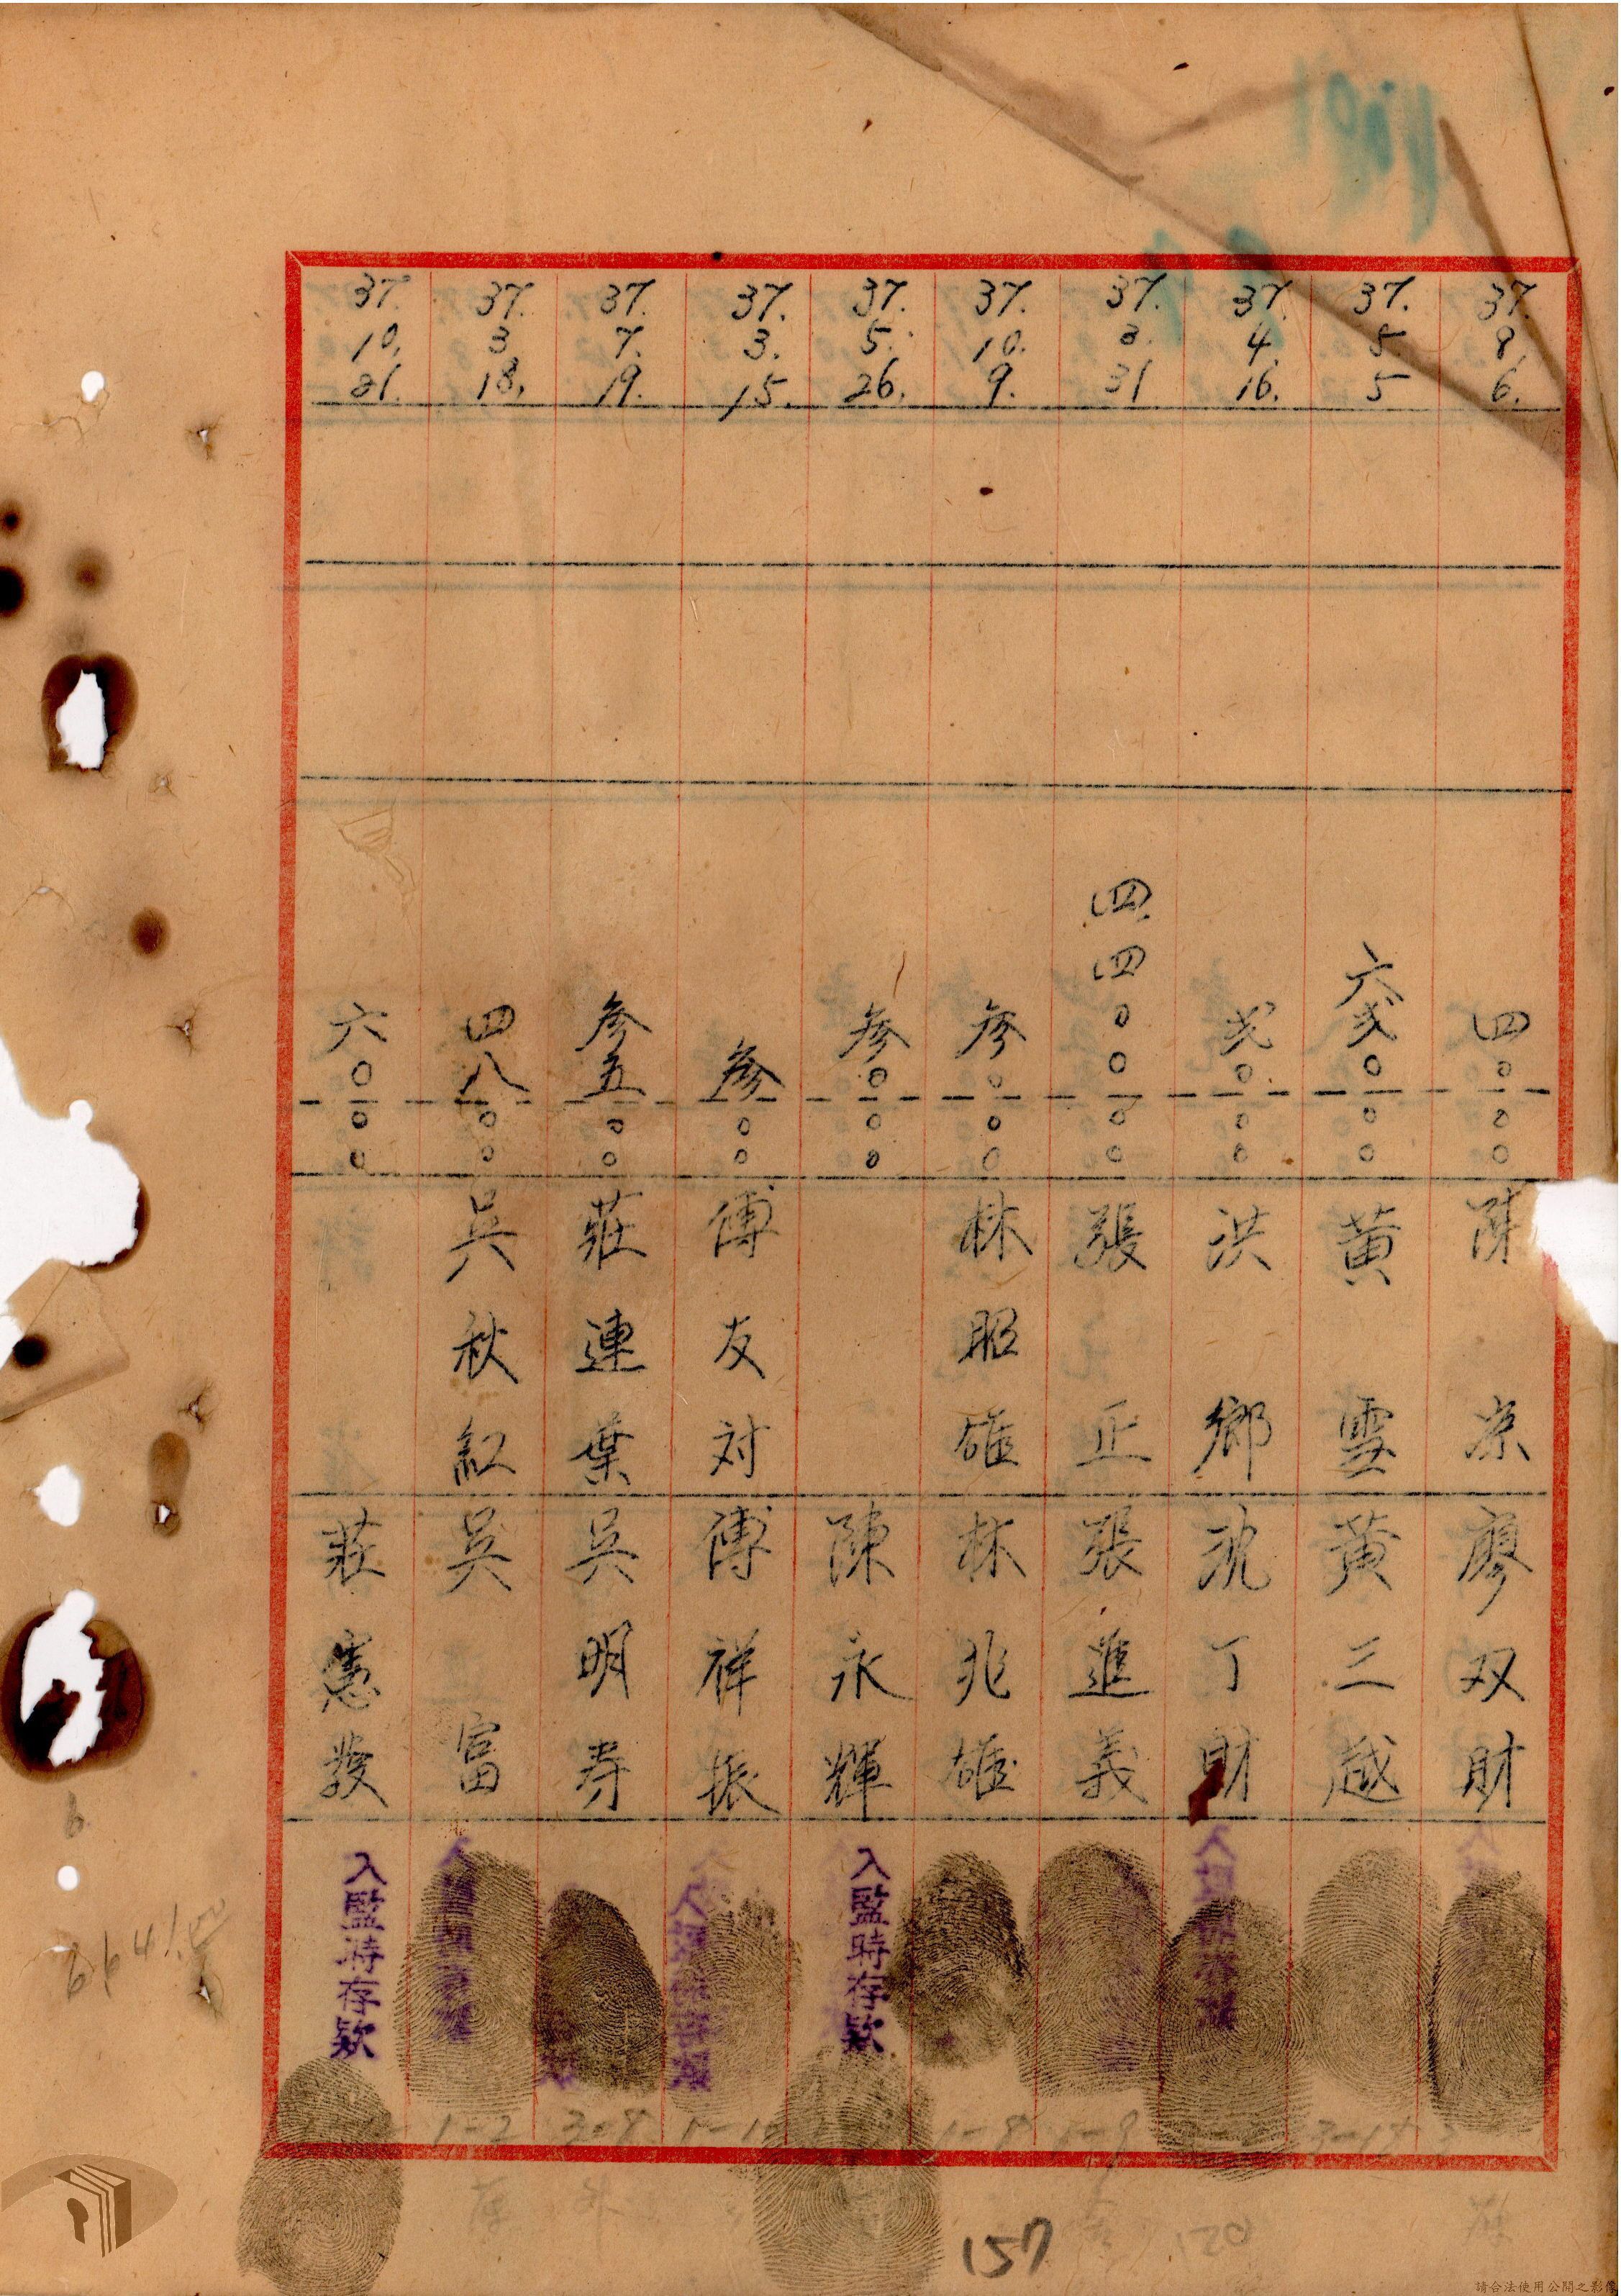 37. 8. 6. 四〇〇〇 陳 廖双財
37. 5. 5 六弍〇〇〇 黄雪 黄三越
37. 4. 16. 弍〇〇〇 洪鄉 沈丁財 入監時存款
37. 3. 31 四四〇〇〇〇 張正 張進義
37. 10. 9. 参〇〇〇 林昭雄 林兆雄
37. 5. 26. 参〇〇〇 陳永輝 入監時存款
37. 3. 15. 参〇〇 傅友対 傅祥振 入監時存款
37. 7. 19. 参五〇〇 莊連葉 吳明寿
37. 3 18. 四八〇〇 吳秋紅 吳富
37. 10. 21. 六〇〇〇 莊憲 入監時存款
1-2
3-8
1-8
1-9
3-18
6641.00
157
120
請合法使用公開之影像